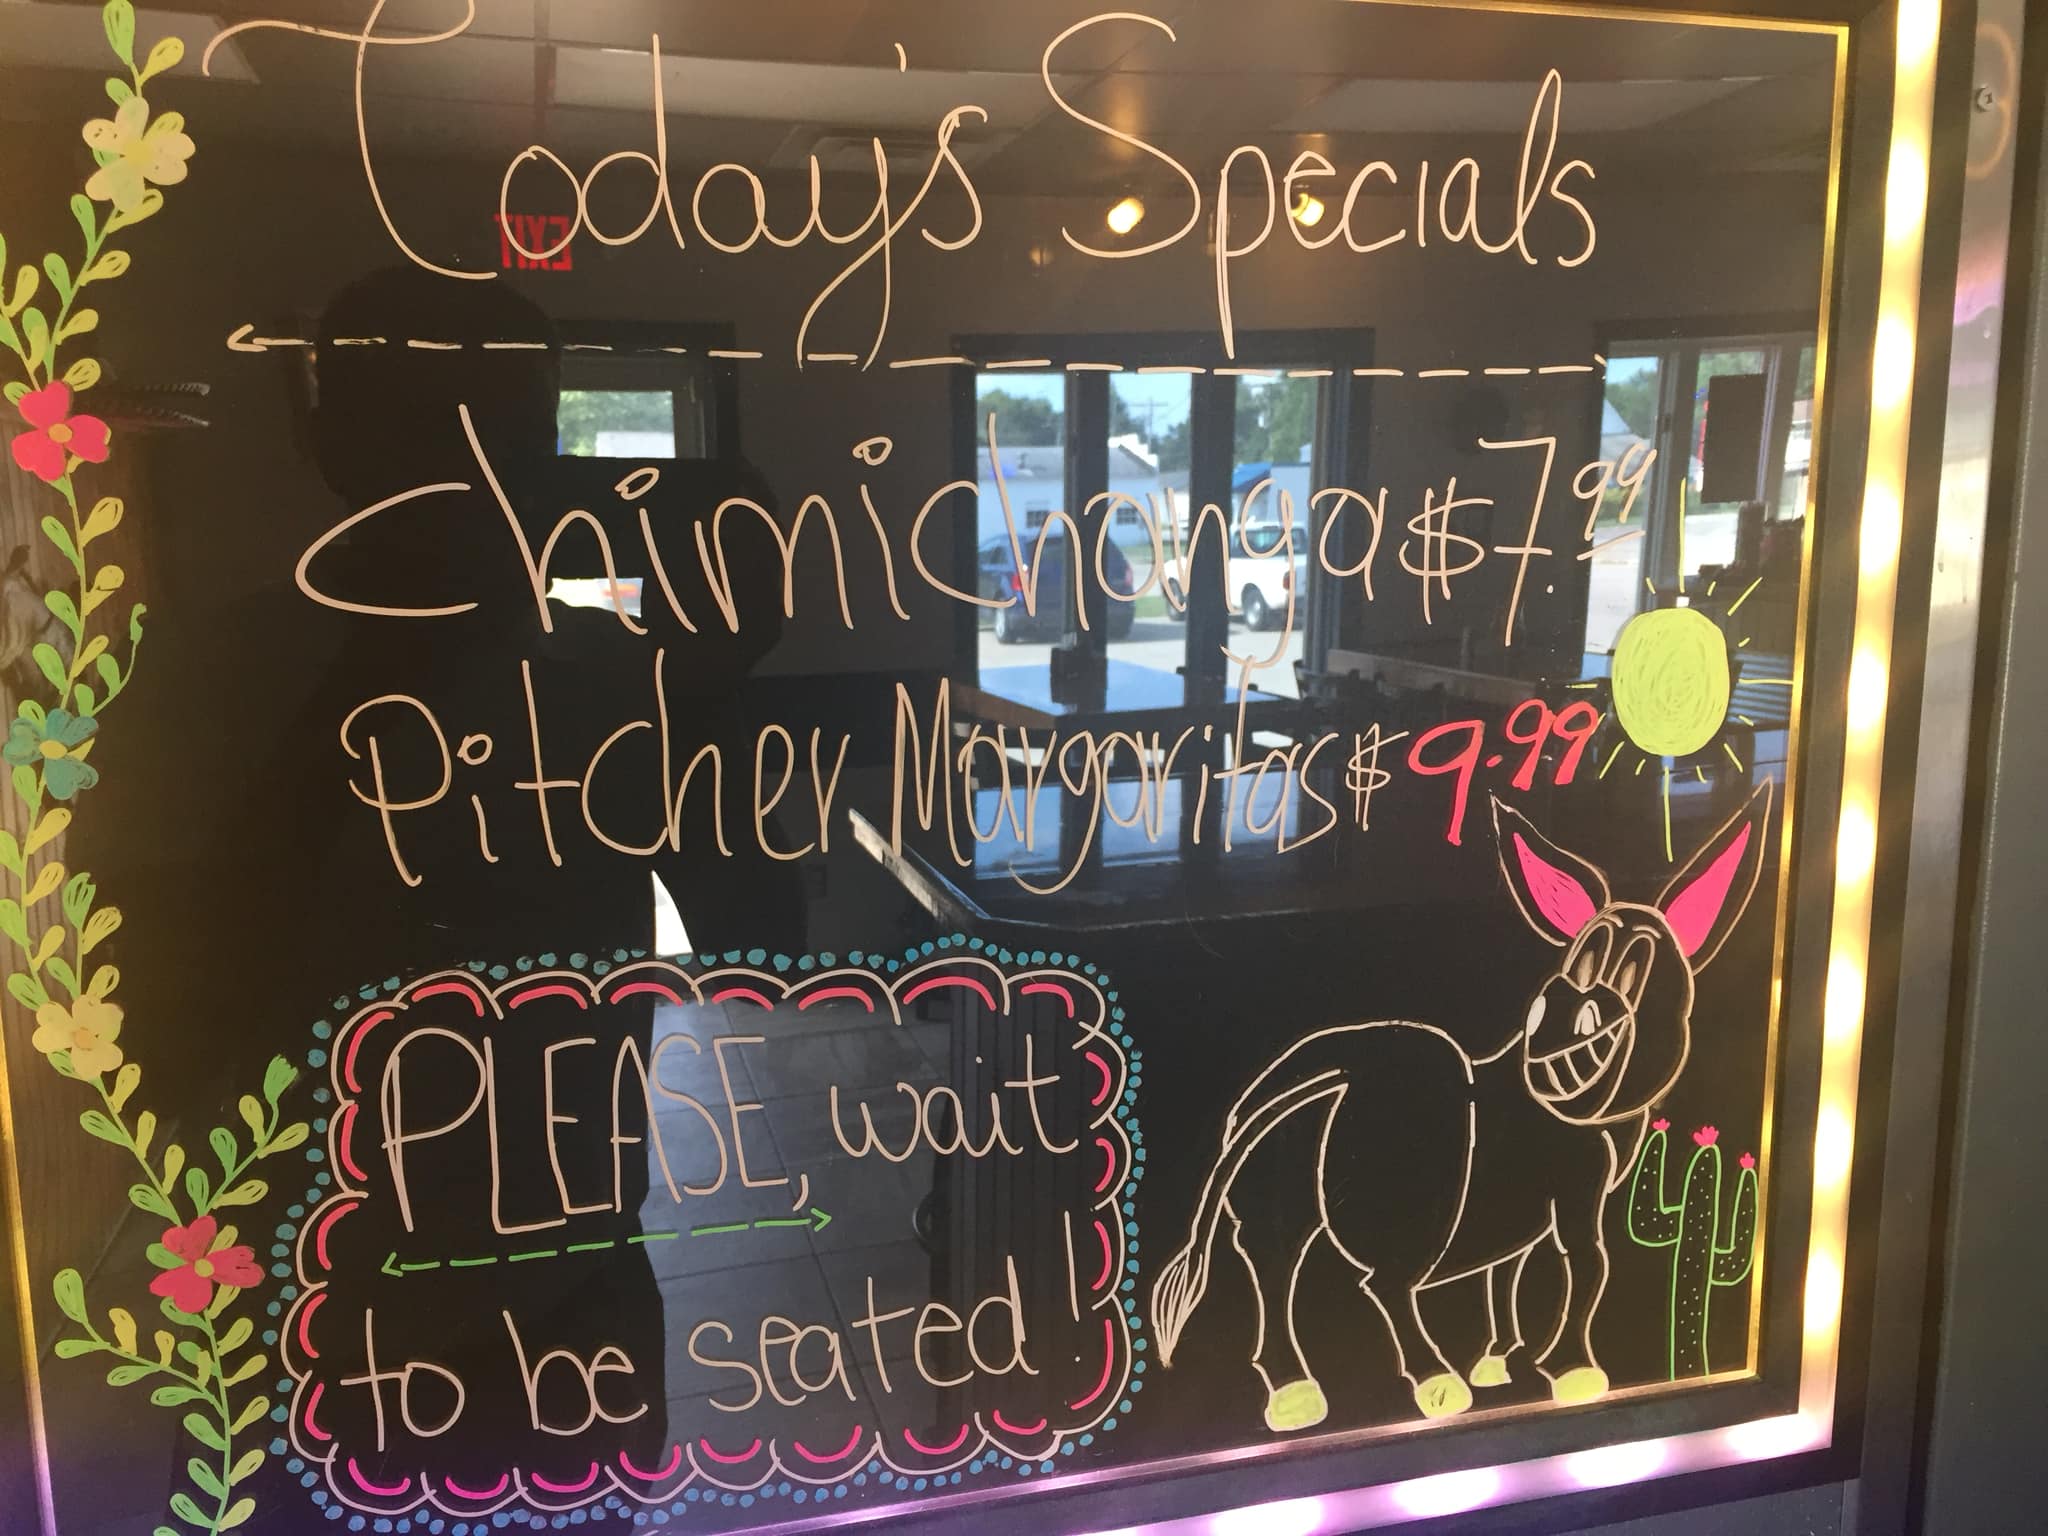 Today's Specials
EXIT
Chimichanga $7.99
Pitcher Margaritas $9.99
PLEASE, wait
to be seated!